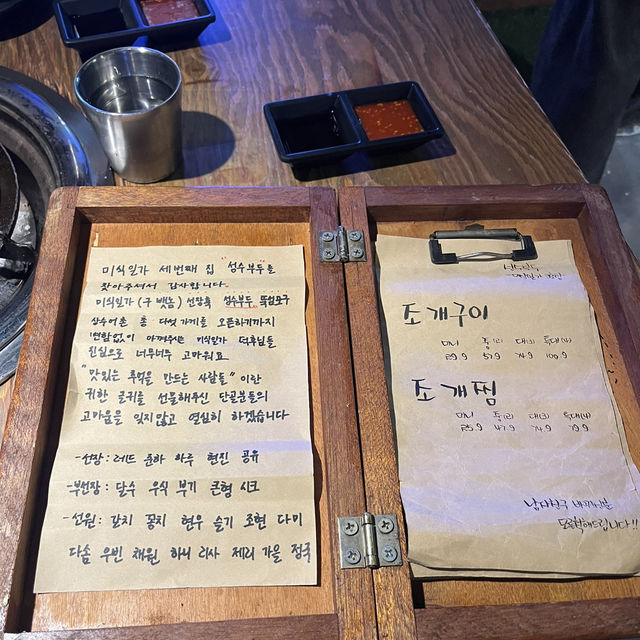 미식일가 세번째 집 "성수부두"를
찾아주셔서 감사합니다.
미식일가 (구 뱃놈) 선방축 성수부두 뚝섬포구
상수어촌 총 다섯 가게를 오픈하기까지
변함없이 아껴주는 미식일가 덕후님들
진심으로 너무너무 고마워요
"맛있는 추억을 만드는 사람들" 이란
귀한 글귀를 선물해주신 단골분들의
고마움을 잊지않고 열심히 하겠습니다
-선장: 레드 준하 하루 현진 공유
-부선장: 달수 우식 부기 큰형 시크
-선원: 갈치 꽁치 현우 슬기 조현 다미
다솜 우빈 채원 하니 라사 제리 가을 정국
조개구이
미니 중(2) 대(3) 특대(4)
39.9 57.9 74.9 100.9
조개찜
미니 중(2) 대(3) 특대(4)
35.9 47.9 74.9 79.9
도 해드립니다!!